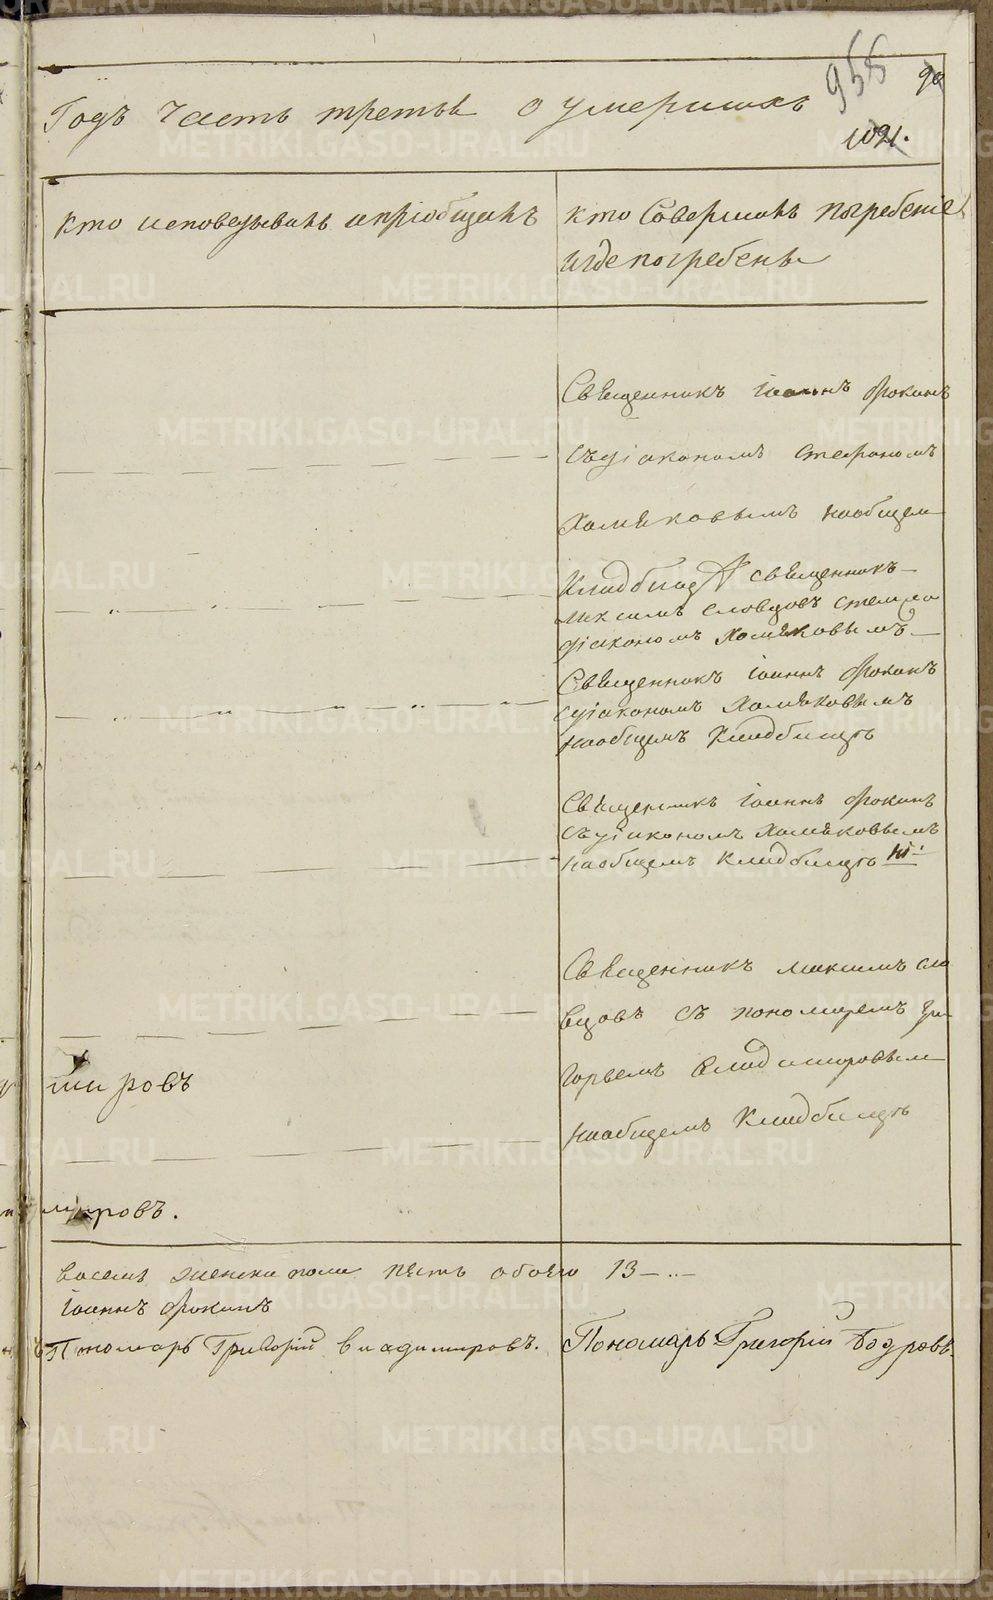 955
90
1021.
Годъ Часть третья о умершихъ
Кто исповедывалъ и пріобщалъ
Кто Совершалъ погребеніе
и где погребены
Священникъ Іоаннъ Фокинъ
съ діакономъ Стефаномъ
Хомяковымъ на общем
Кладбище Священникъ
Максимъ Словцовъ
діакономъ Хомяковымъ
Священникъ Іоаннъ Фокинъ
с діакономъ Хомяковымъ
на общемъ Кладбищѣ
Священникъ Іоаннъ Фокинъ
съ діакономъ Хомяковымъ
на общемъ Кладбищѣ
Священникъ Максимъ Сло
вцовъ съ пономаремъ Гри
горьемъ Владимировым
на общемъ Кладбищѣ
мировъ
мировъ.
восемь женска пола пять обоего 13
Іоаннъ Фокинъ
Пономарь Григорій Владимировъ.
Пономарь Григорій Бодровъ.
METRIKI.GASO-URAL.RU